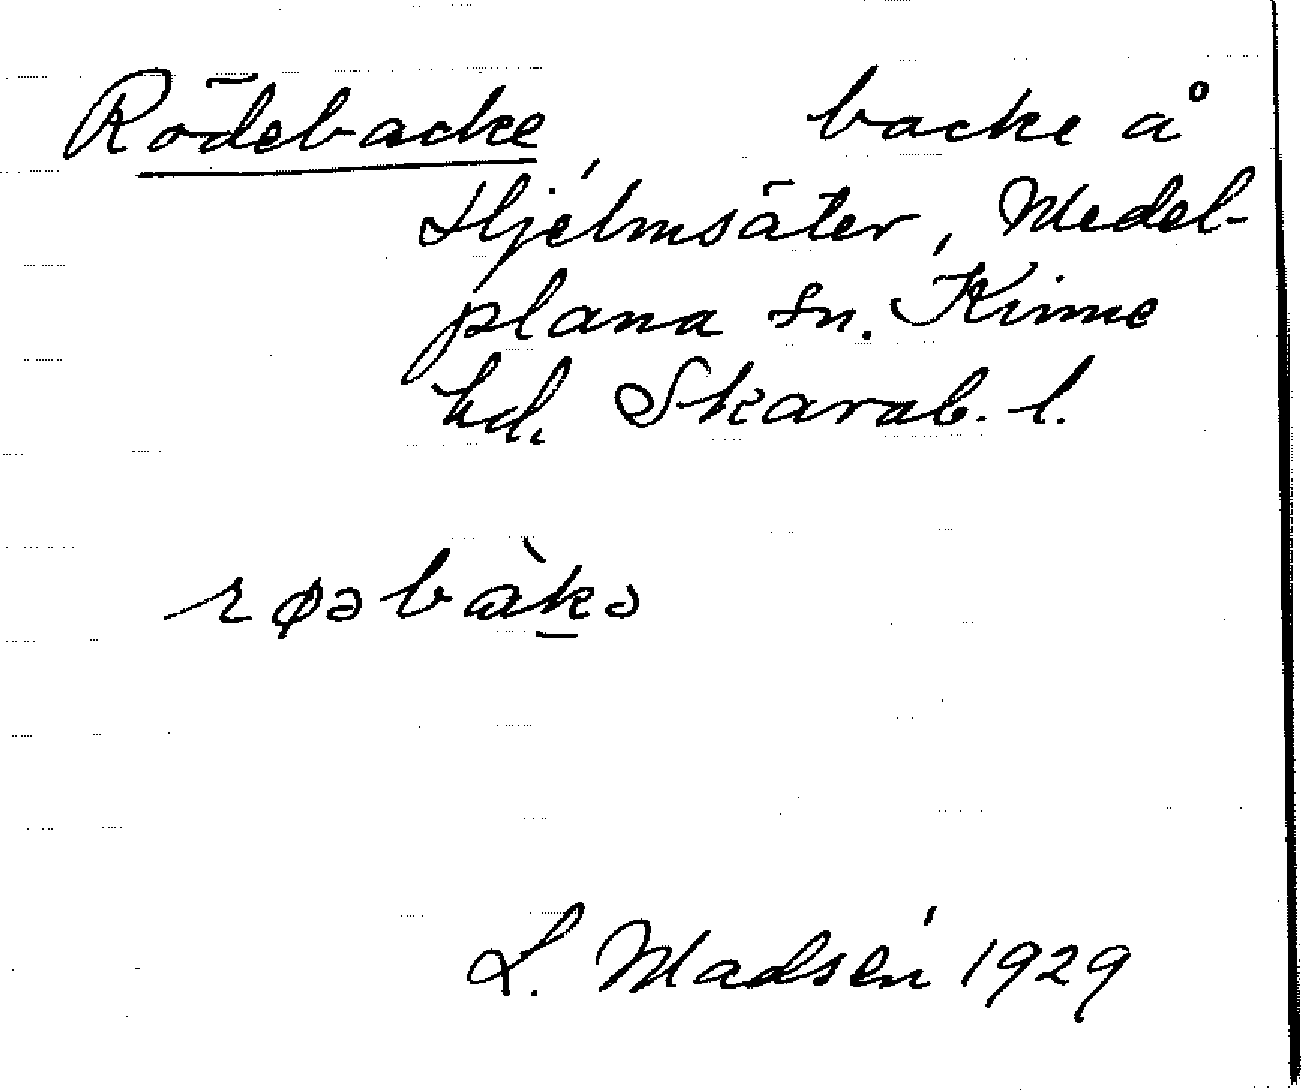 Rödebacke, backe å
Hjelmsäter, Medel-
plana sn. Kinne
hd. Skarab. l.
røəbàkə
L. Madsén 1929